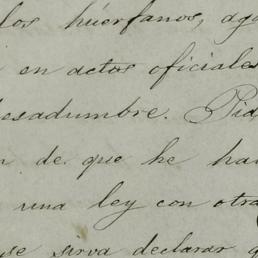 los húerfanos, 
en actos oficiales
pesadumbre.
de que he
una ley con otra
se sirva declarar